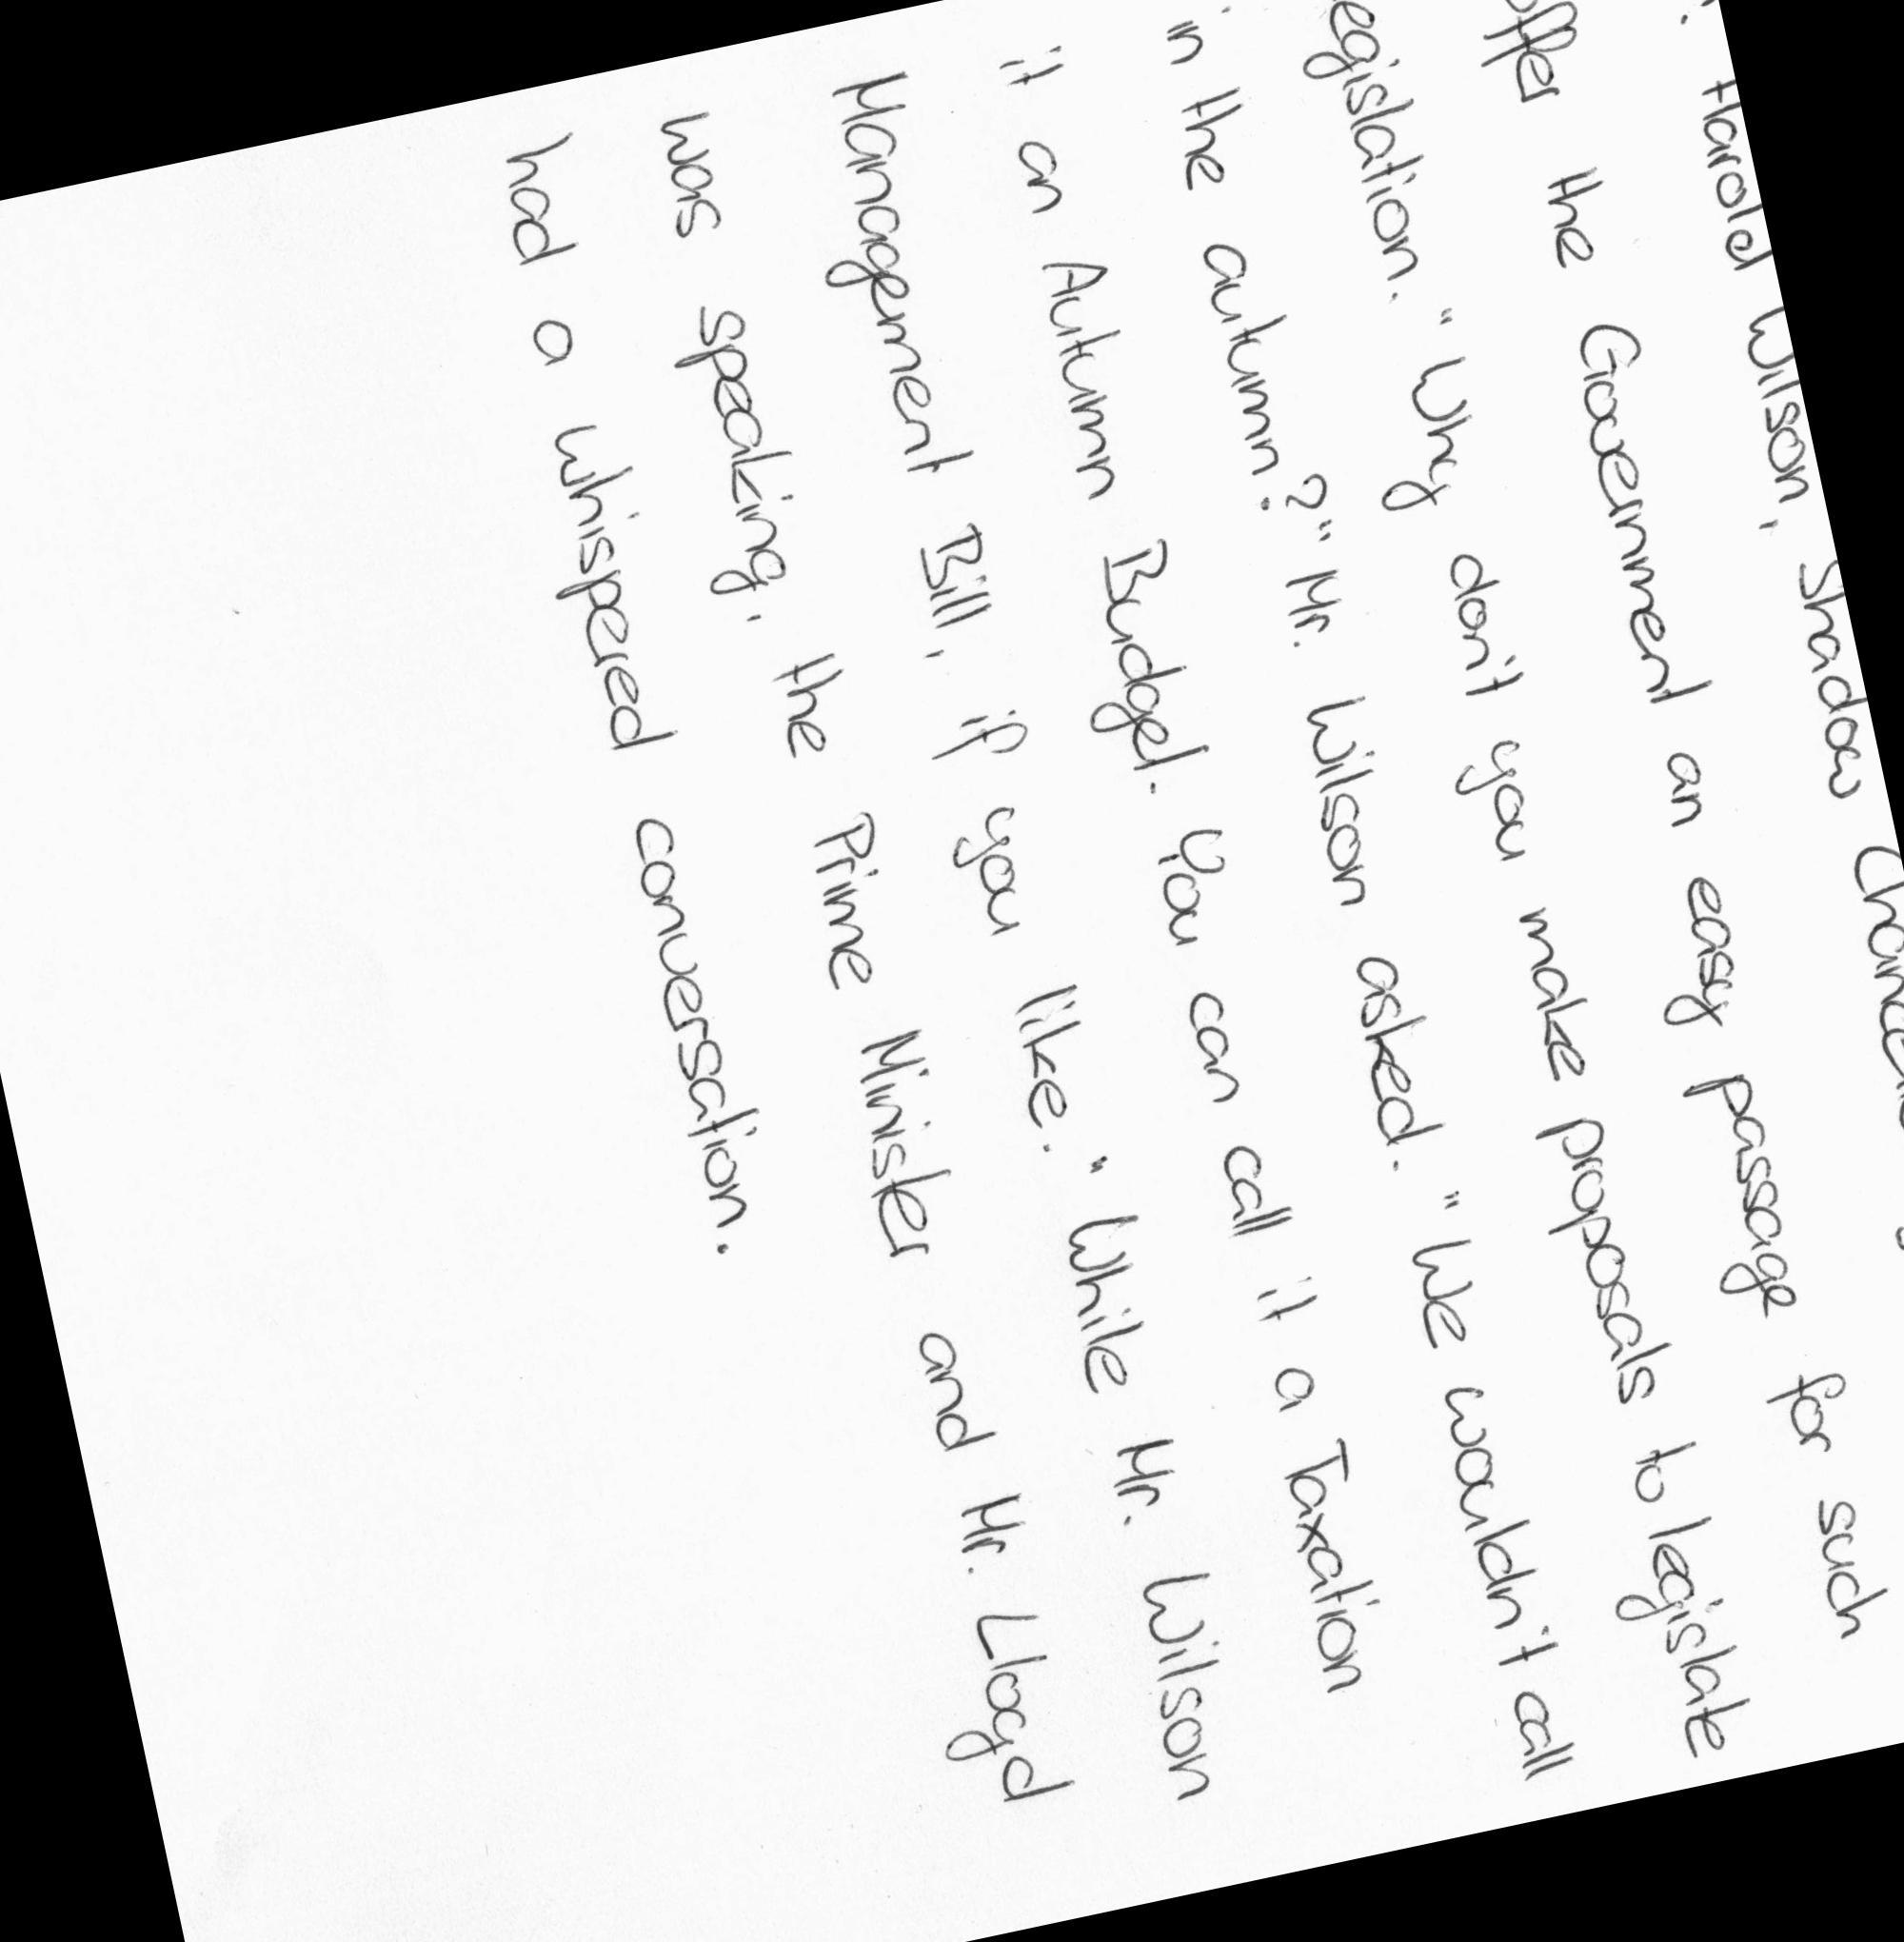 Harold Wilson, Shadow
offer the Government an easy passage for such
legislation. "Why don't you make proposals to legislate
in the autumn?" Mr. Wilson asked. "We wouldn't call
it an Autumn Budget. You can call it a Taxation
Management Bill, if you like." While Mr. Wilson
was speaking, the Prime Minister and Mr. Lloyd
had a whispered conversation.